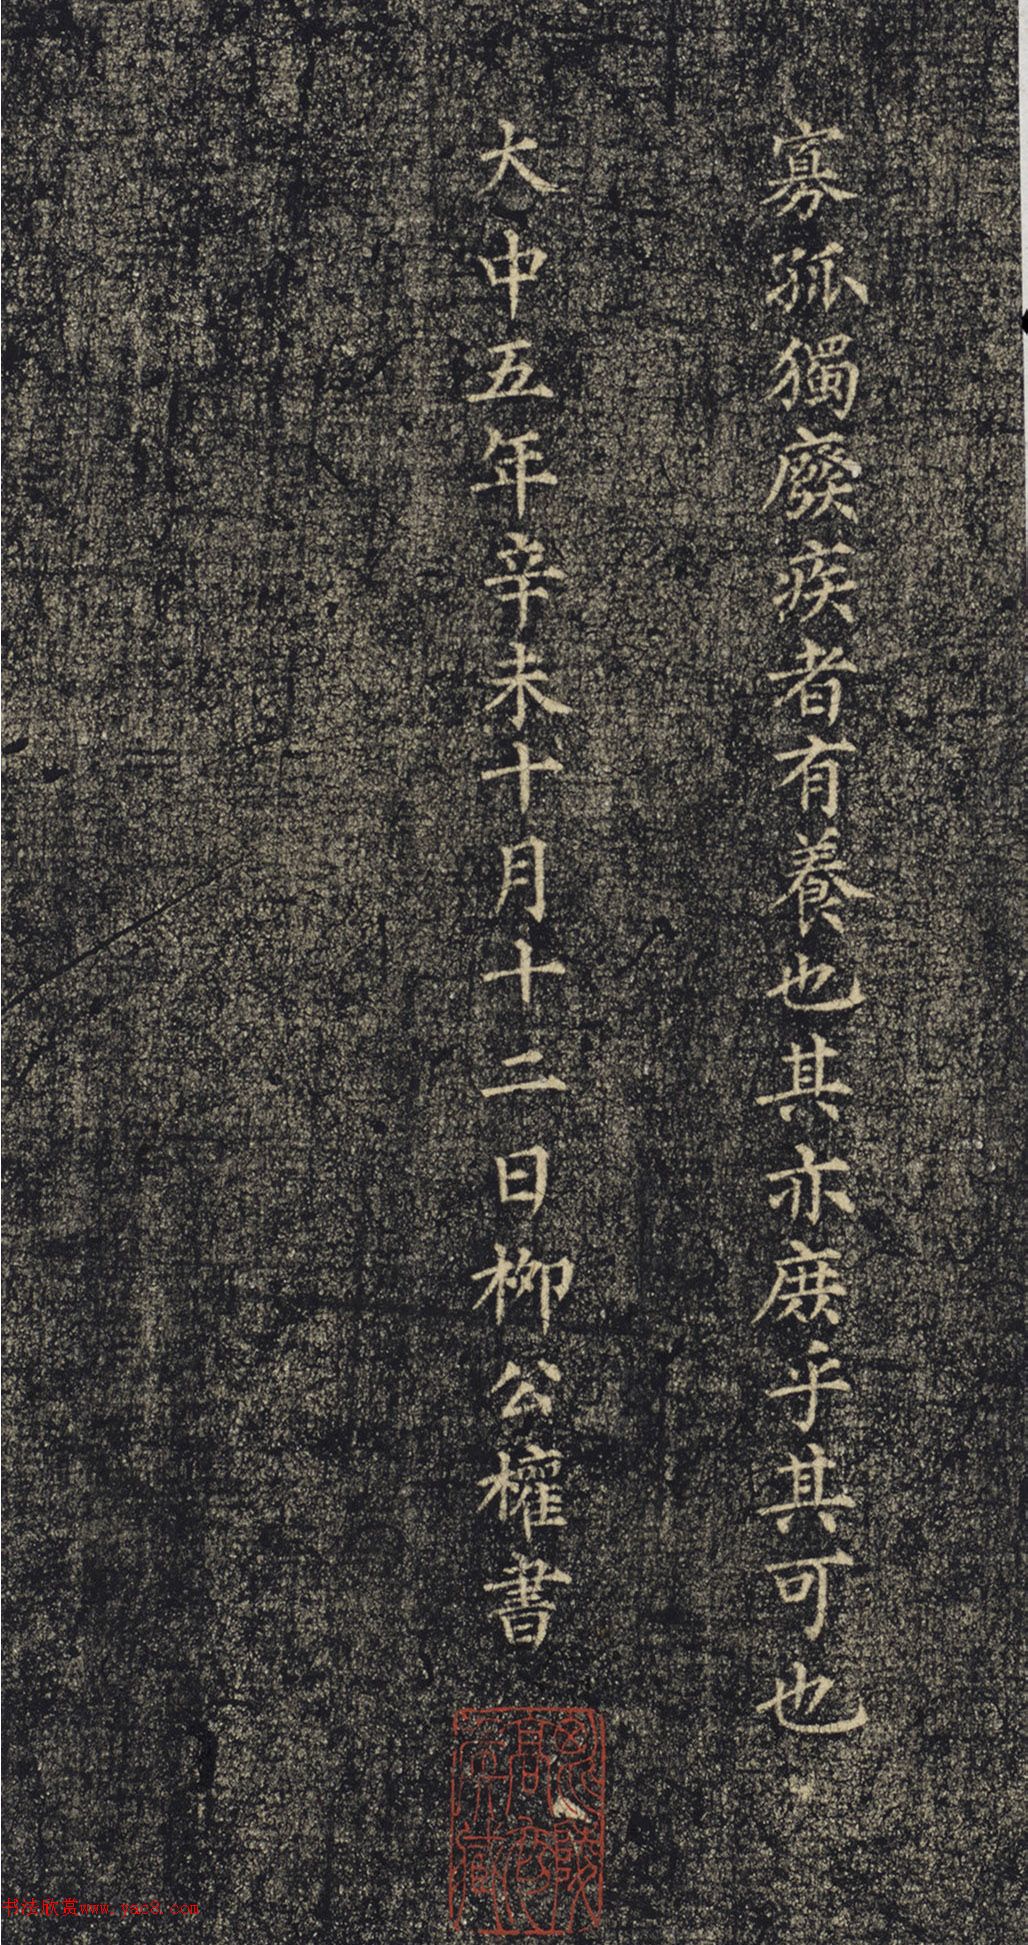 寡孤獨廢疾者有養也其亦庶乎其可也
大中五年辛未十月十二日柳公權書
书法欣赏www.yac8.com